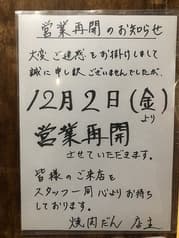 営業再開のお知らせ
大変ご迷惑をお掛けしまして
誠に申し訳ございませんでしたが、
12月2日(金)
より
営業再開
させていただきます。
皆様のご来店を
スタッフ一同心よりお待ち
しております。
焼肉だん 店主